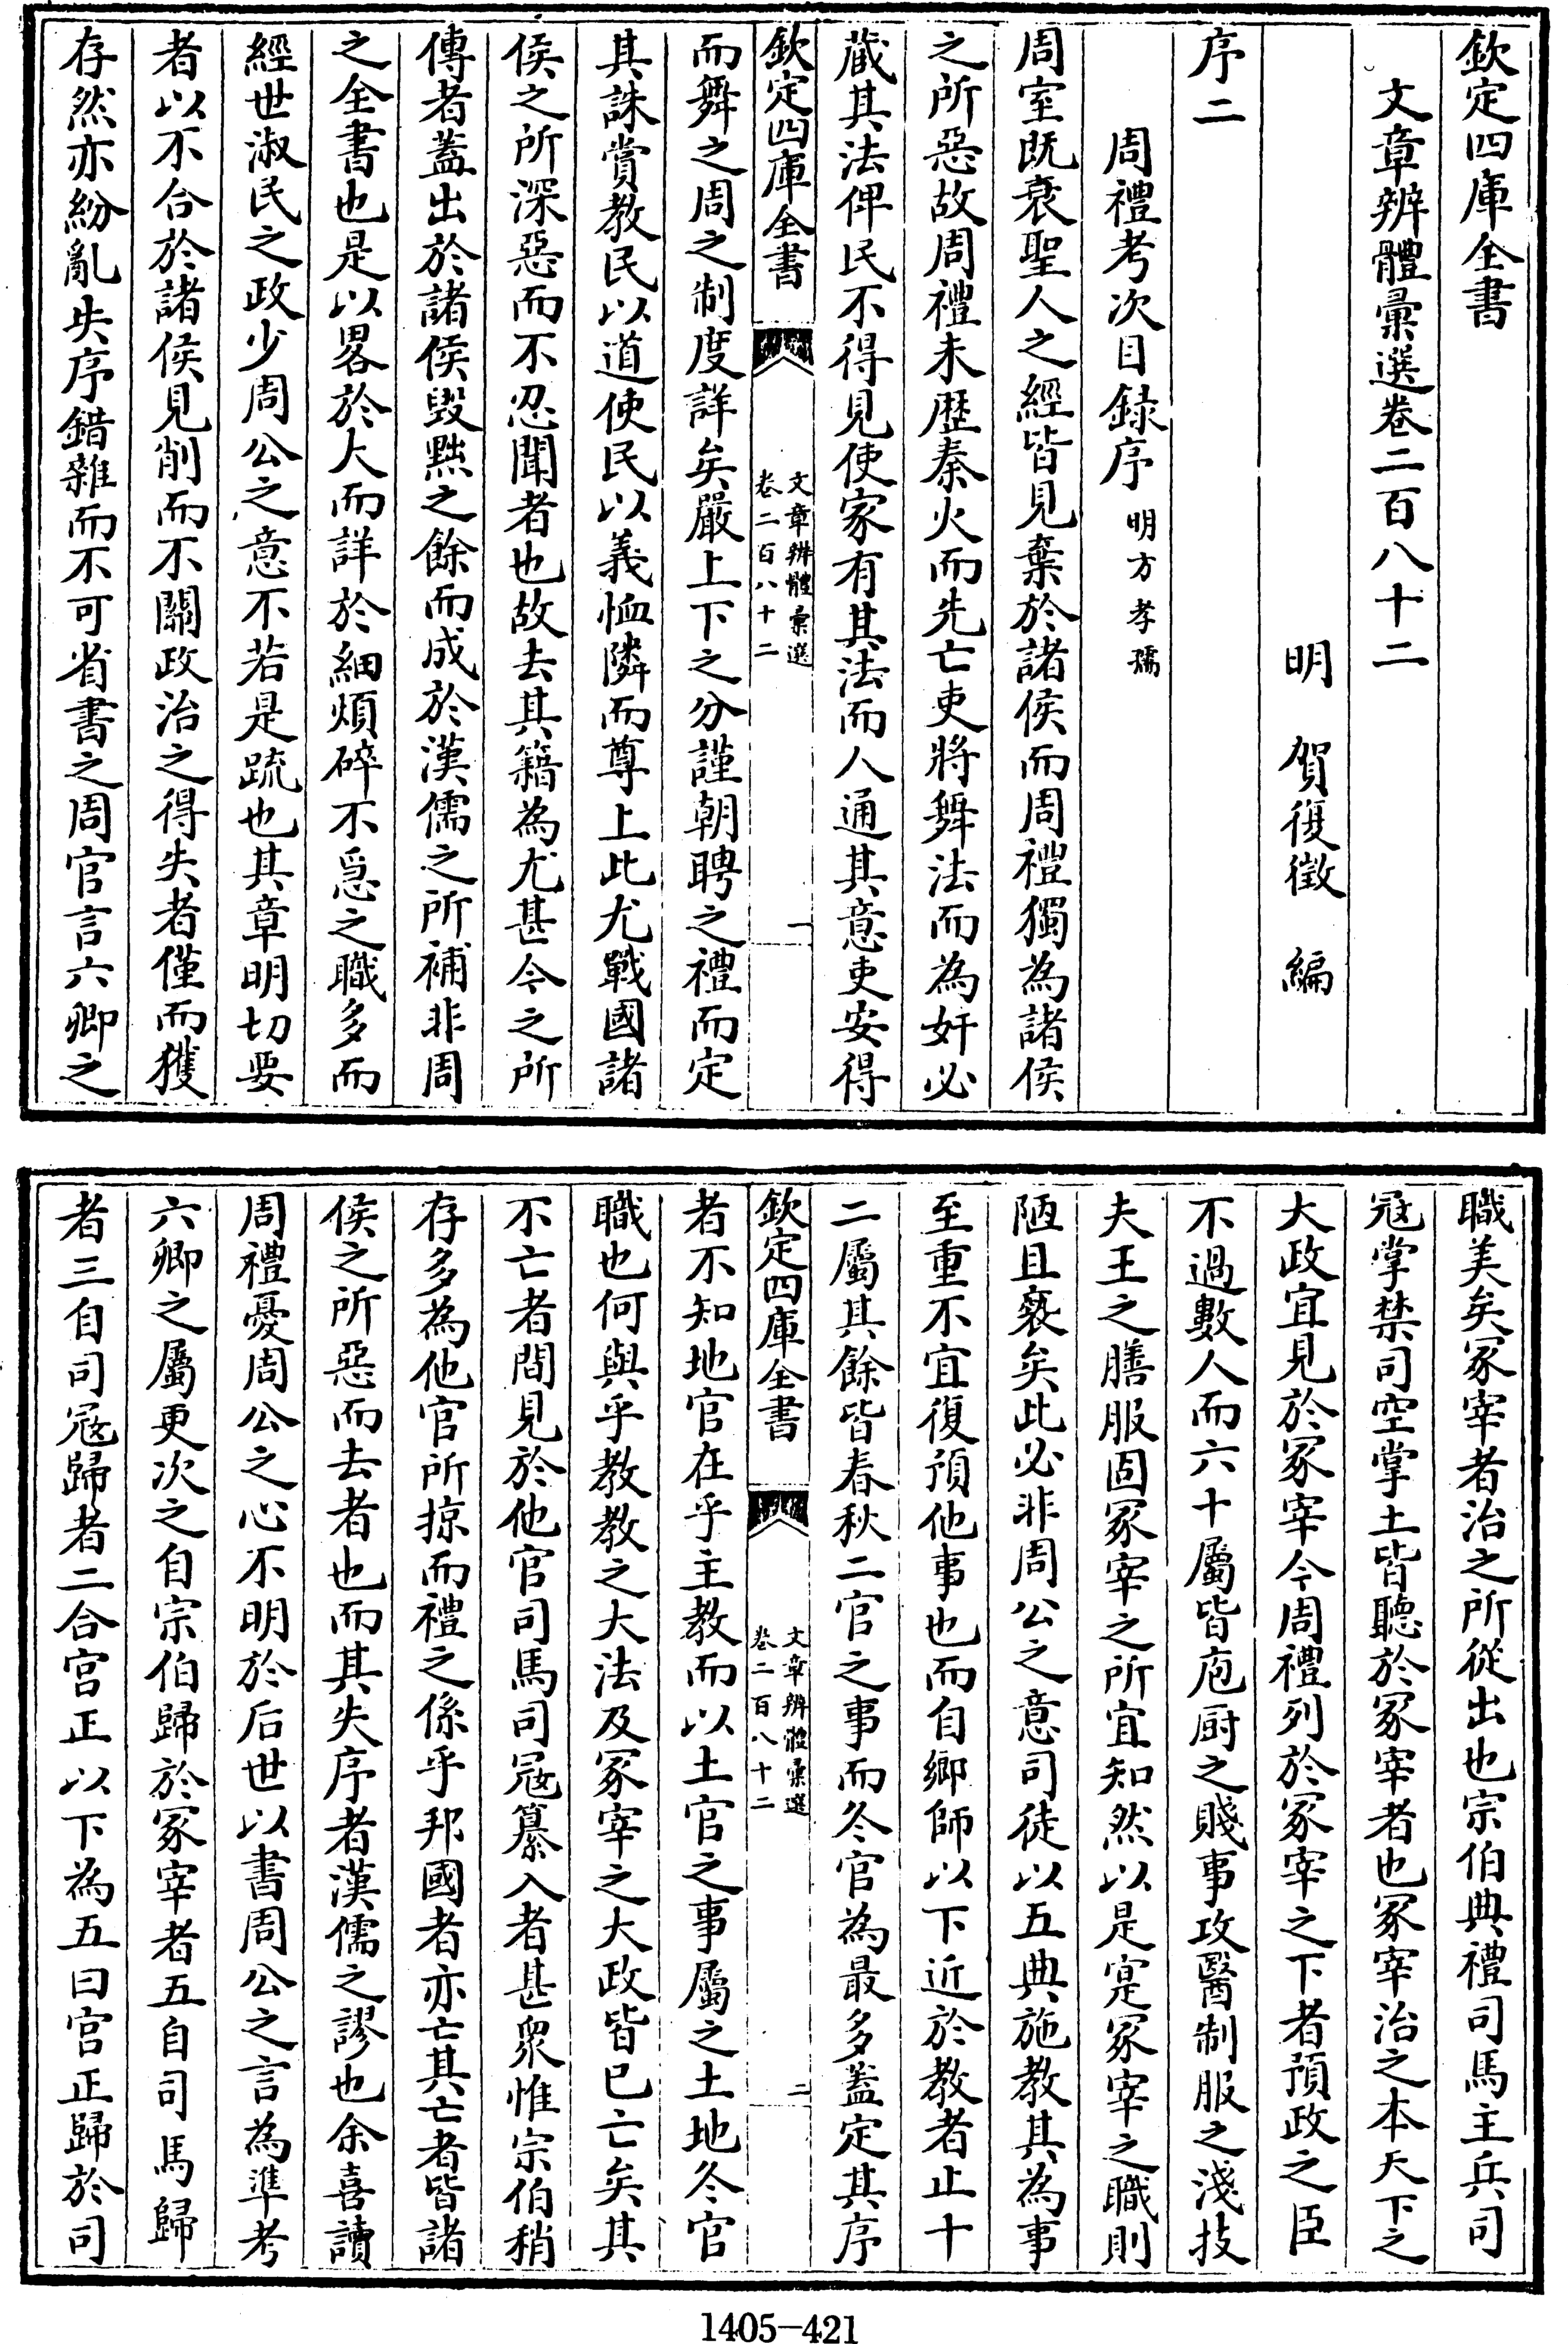 欽定四庫全書
文章辨體彙選卷二百八十二
明 賀復徵 編
序二
周禮考次目録序 明方孝孺
周室既衰聖人之經皆見棄於諸侯而周禮獨為諸侯
之所惡故周禮未歴秦火而先亡吏將舞法而為奸必
藏其法俾民不得見使家有其法而人通其意吏安得
欽定四庫全書
文章辨體彙選
卷二百八十二
一
而舞之周之制度詳矣嚴上下之分謹朝聘之禮而定
其誅賞教民以道使民以義恤隣而尊上此尤戰國諸
侯之所深惡而不忍聞者也故去其籍為尤甚今之所
傳者蓋出於諸侯毁黜之餘而成於漢儒之所補非周
之全書也是以畧於大而詳於細煩碎不急之職多而
經世淑民之政少周公之意不若是疏也其章明切要
者以不合於諸侯見削而不關政治之得失者僅而獲
存然亦紛亂失序錯雜而不可省書之周官言六卿之
職美矣冢宰者治之所從出也宗伯典禮司馬主兵司
冦掌禁司空掌土皆聽於冢宰者也冢宰治之本天下之
大政宜見於冢宰今周禮列於冢宰之下者預政之臣
不過數人而六十屬皆庖厨之賤事攻醫制服之淺技
夫王之膳服固冢宰之所宜知然以是寔冢宰之職則
陋且䙝矣此必非周公之意司徒以五典施教其為事
至重不宜復預他事也而自鄉師以下近於教者止十
二屬其餘皆春秋二官之事而冬官為最多蓋定其序
欽定四庫全書
文章辨體彙選
卷二百八十二
二
者不知地官在乎主教而以土官之事屬之土地冬官
職也何與乎教教之大法及冢宰之大政皆已亡矣其
不亡者間見於他官司馬司冦纂入者甚衆惟宗伯稍
存多為他官所掠而禮之係乎邦國者亦亡其亡者皆諸
侯之所惡而去者也而其失序者漢儒之謬也余喜讀
周禮憂周公之心不明於后世以書周公之言為準考
六卿之屬更次之自宗伯歸於冢宰者五自司馬歸
者三自司冦歸者二合宫正以下為五曰宫正歸於司
1405-421